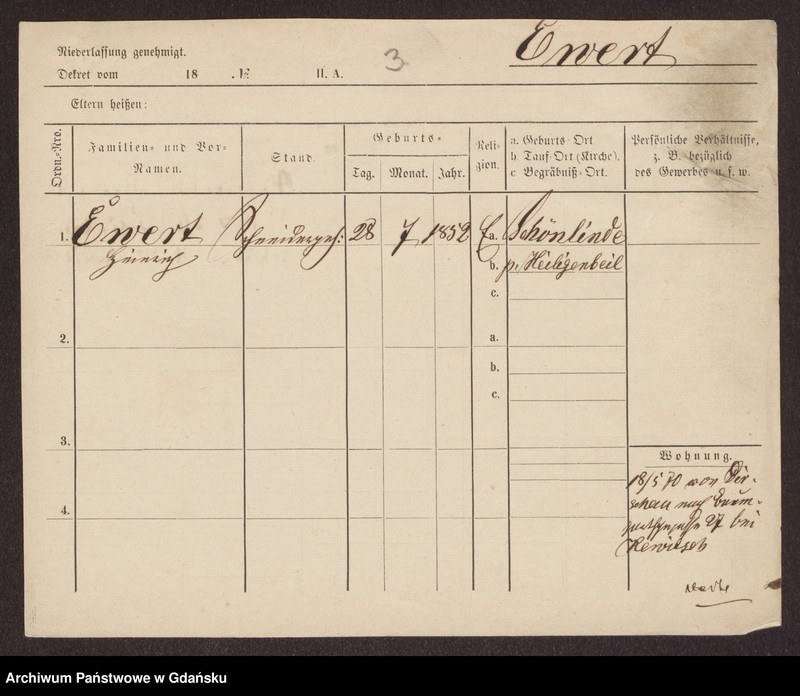 Niederlassung genehmigt.
Dekret vom 18 . II. A.
3
Ewert
Eltern heißen:
Ordn.-Nro.
Familien- und Vor-
Namen.
Stand.
Geburts-
Tag. Monat. Jahr.
Reli-
gion.
a. Geburts-Ort
b. Tauf-Ort (Kirche).
c. Begräbniß-Ort.
Persönliche Verhältnisse,
z. B. bezüglich
des Gewerbes u. s. w.
1. Ewert Schneiderges: 28 7 1852 E a. Schönlinde
Heinrich
b. p. Heiligenbeil
c.
2. a.
b.
c.
3.
Wohnung.
18/5 70 von Dir-
schau nach Baum-
27 bei
4.
Archiwum Państwowe w Gdańsku